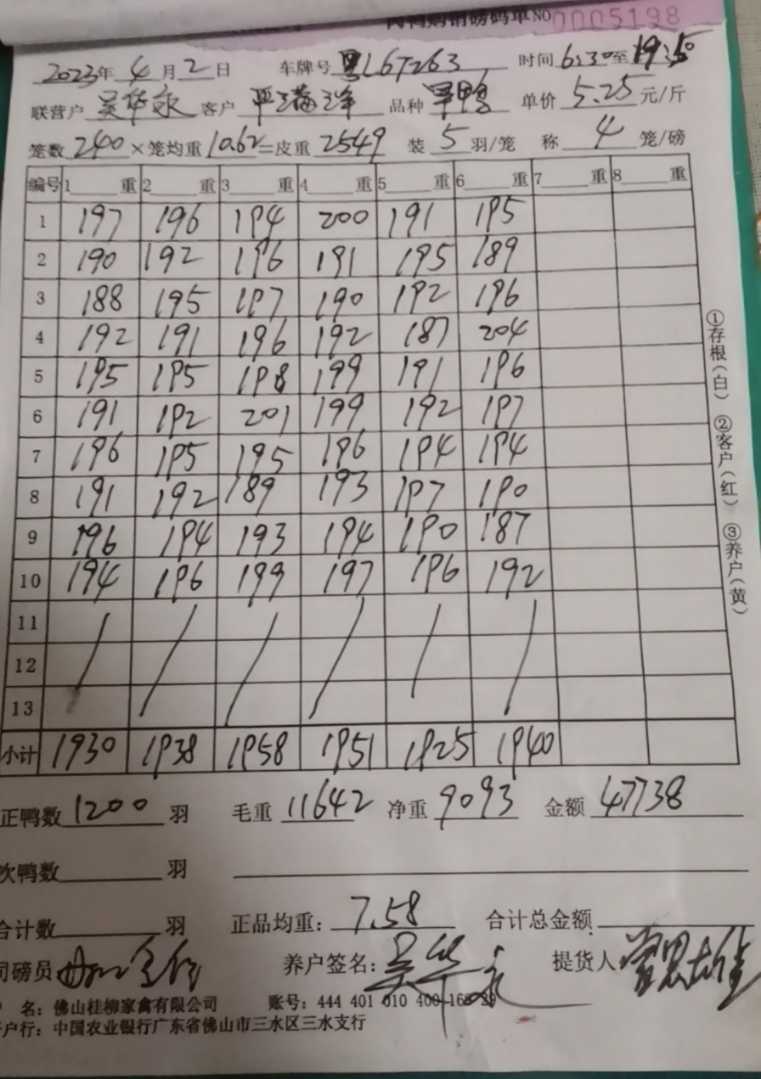 肉鸭购销磅码单 NO 0005198
2023年 4 月 2 日 车牌号 粤L67263 时间 6:30至19:50
联营户 吴华永 客户 严满洋 品种 旱鸭 单价 5.25 元/斤
笼数 240 ×笼均重 10.62 =皮重 2549 装 5 羽/笼 称 4 笼/磅
编号 1 重 2 重 3 重 4 重 5 重 6 重 7 重 8 重
1 197 196 194 200 191 195
2 190 192 196 191 195 189
3 188 195 197 190 192 196
4 192 191 196 192 187 204
5 195 195 198 199 191 196
6 191 192 201 199 192 197
7 196 195 195 196 194 194
8 191 192 189 193 197 190
9 196 194 193 194 190 187
10 194 196 199 197 196 192
11
12
13
小计 1930 1938 1958 1951 1925 1940
①存根(白) ②客户(红) ③养户(黄)
正鸭数 1200 羽 毛重 11642 净重 9093 金额 47738
次鸭数 羽
合计数 羽 正品均重: 7.58 合计总金额
司磅员 养户签名: 吴华永 提货人
户 名: 佛山桂柳家禽有限公司 账号: 444 401 010 400 16
户行: 中国农业银行广东省佛山市三水区三水支行